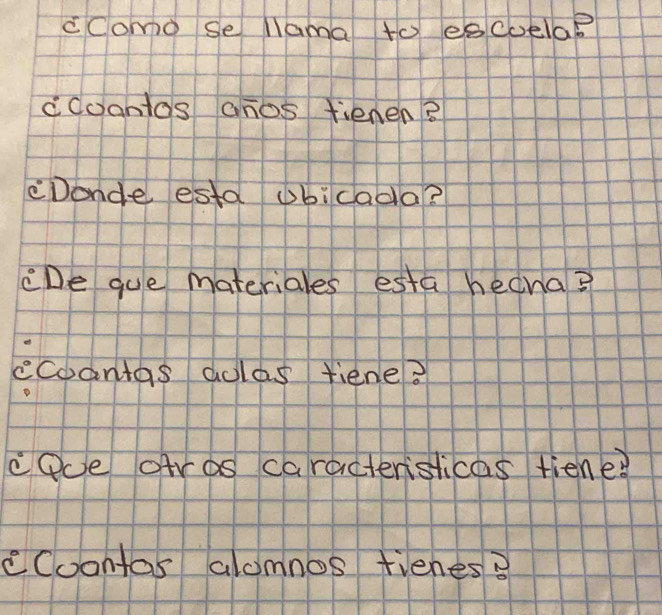 ¿Como se llama tu escuela?
¿Cuantos años tienen?
¿Donde esta ubicada?
¿De que materiales esta hecha?
¿Cuantas aulas tiene?
¿Que otros caracteristicas tiene?
¿Cuantas alumnos tienes?